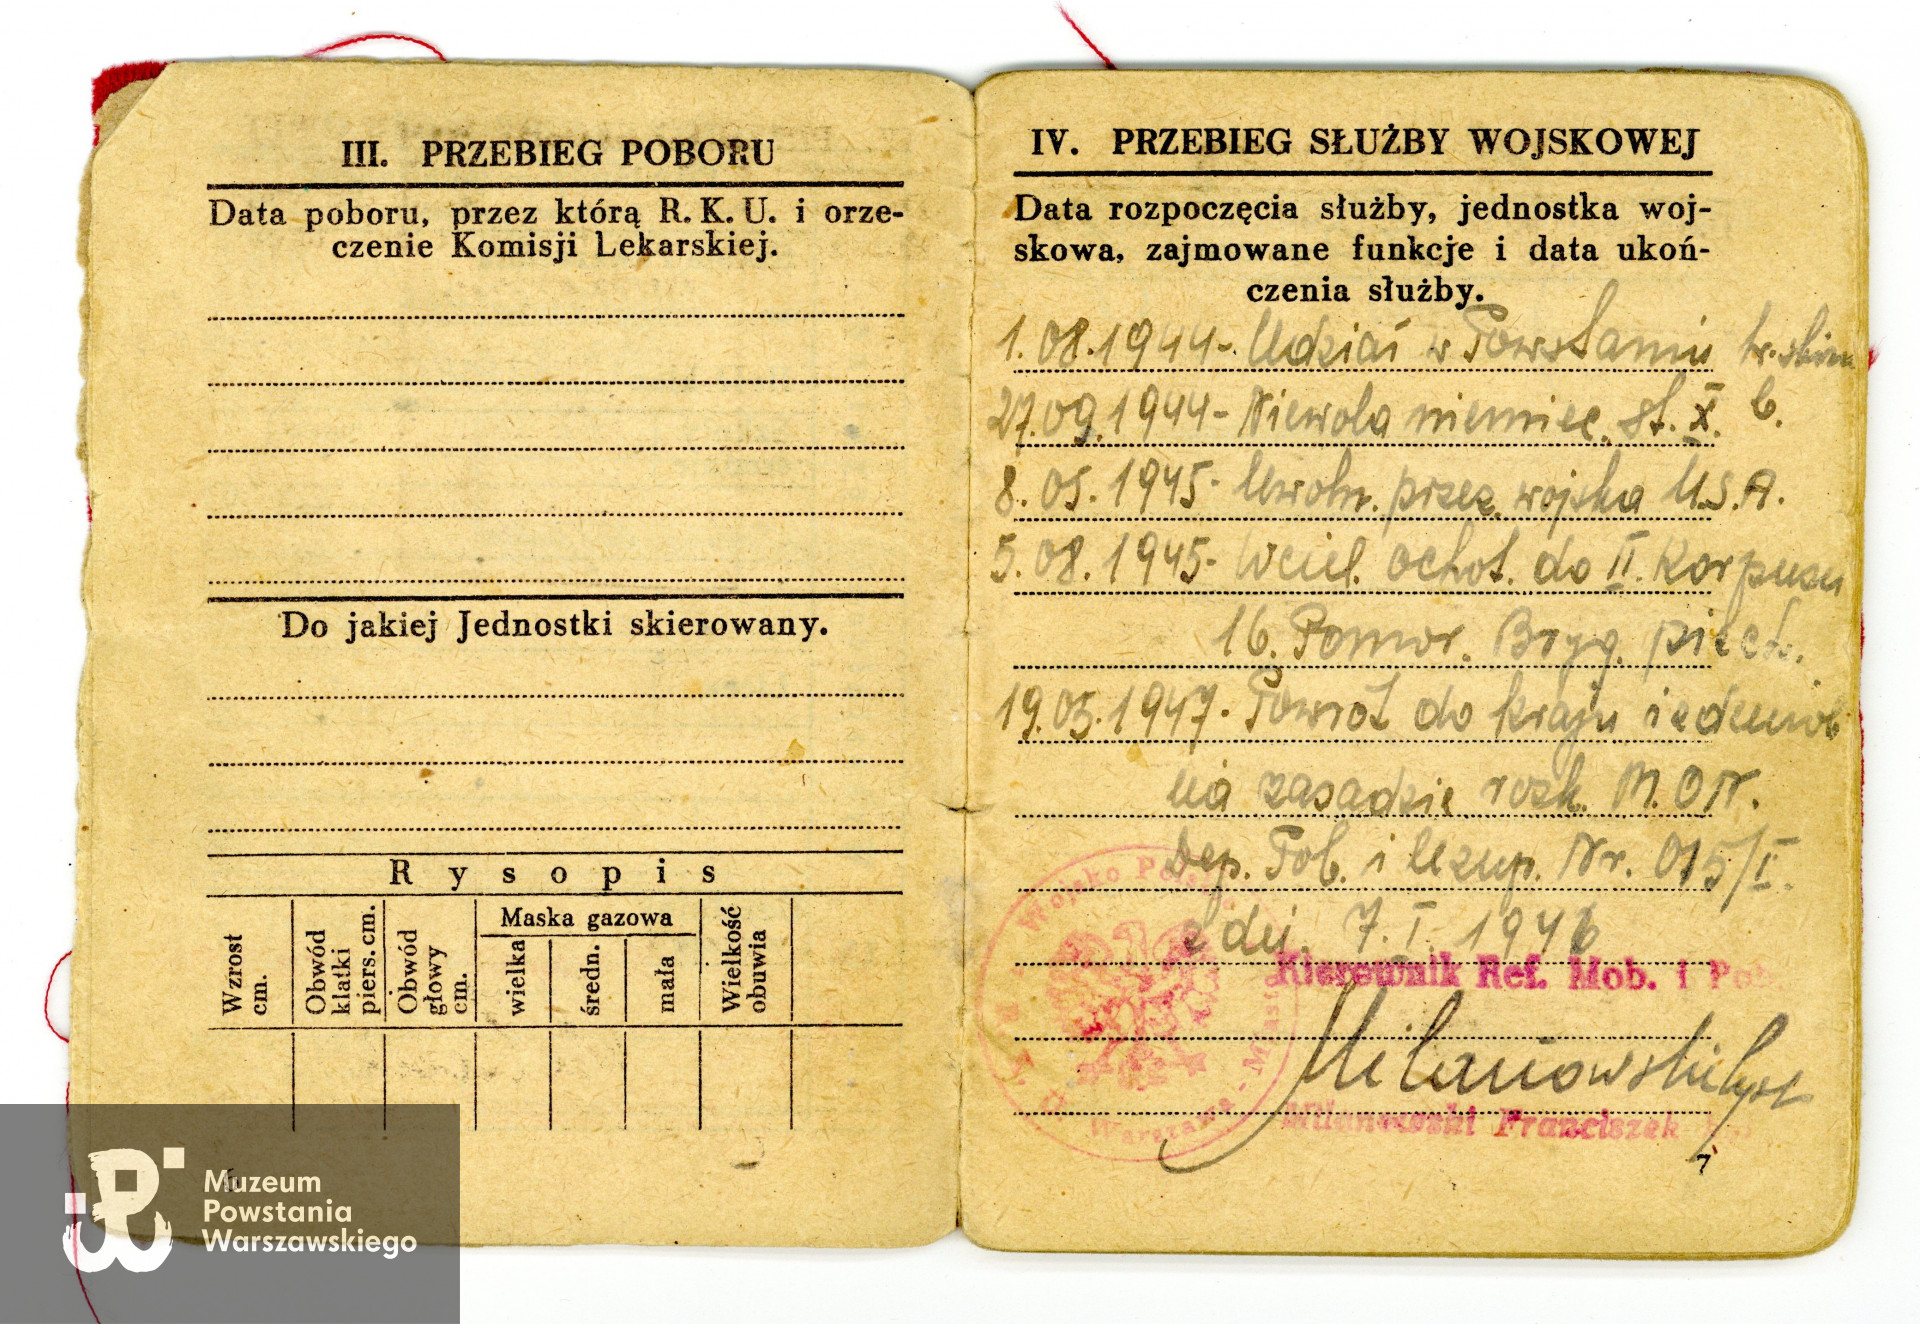 III. PRZEBIEG POBORU
Data poboru, przez którą R. K. U. i orze-
czenie Komisji Lekarskiej.
Do jakiej Jednostki skierowany.
Rysopis
Wzrost cm.
Obwód klatki piers. cm.
Obwód głowy cm.
Maska gazowa
wielka
średn.
mała
Wielkość obuwia
Muzeum
Powstania
Warszawskiego
IV. PRZEBIEG SŁUŻBY WOJSKOWEJ
Data rozpoczęcia służby, jednostka woj-
skowa, zajmowane funkcje i data ukoń-
czenia służby.
1.08.1944 - Udział w Powstaniu
27.09.1944 - Niewola niemiec. St. X. b.
8.05.1945 - Uwoln. przez wojska U.S.A.
5.08.1945 - Wciel. ochot. do II. Korpusu
16. Pomor. Bryg. piech.
19.05.1947 - Powrót do kraju i zdemob
na zasadzie rozk. M.O.N.
Dep. Pob. i Uzup. Nr. 015/I.
z dn. 7. I. 1946
Kierownik Ref. Mob. i
Milanowski
Milanowski Franciszek
Wojsko Polskie
Warszawa - Miasto
7